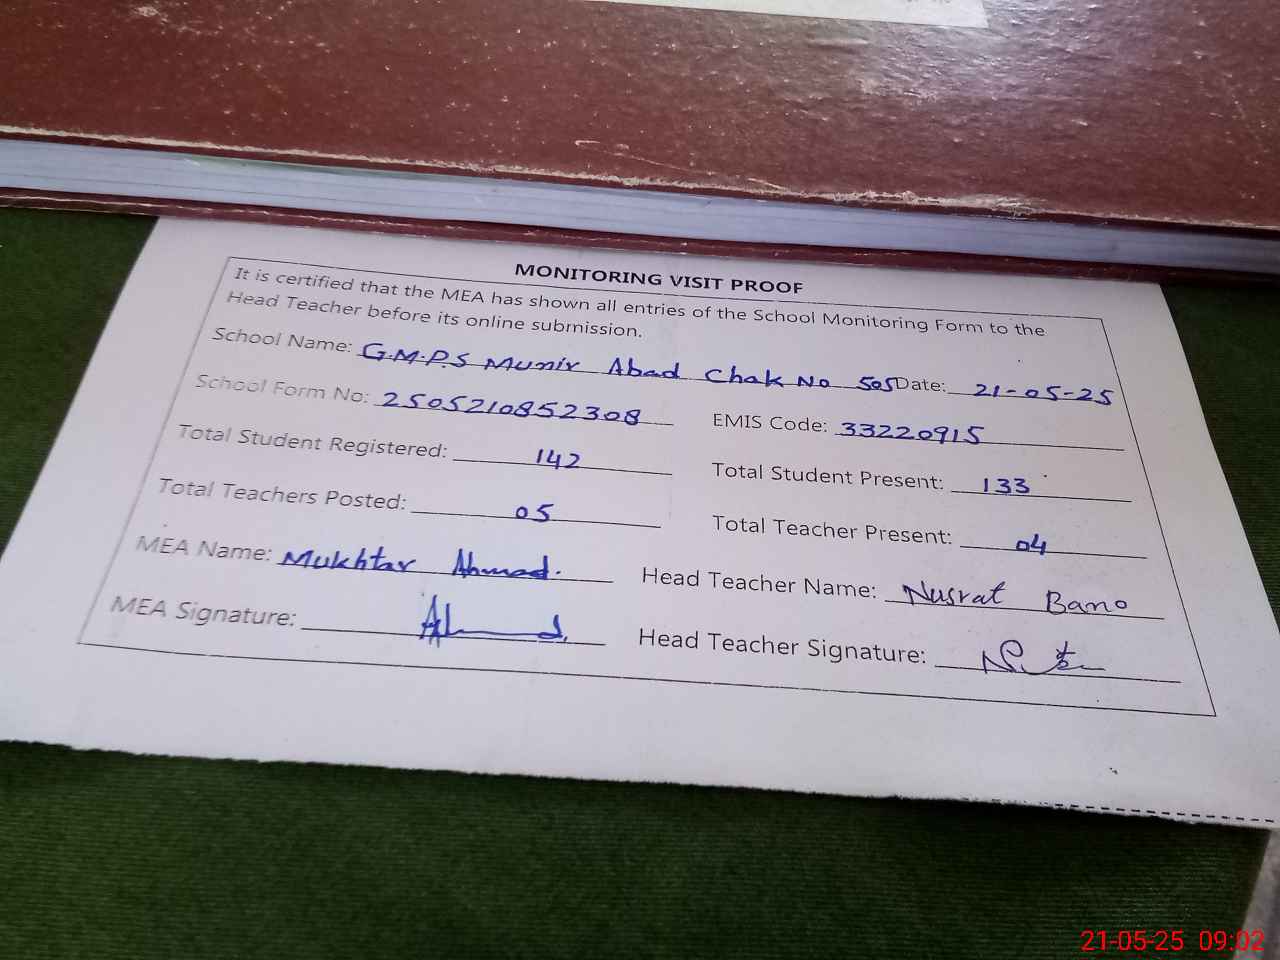 MONITORING VISIT PROOF
It is certified that the MEA has shown all entries of the School Monitoring Form to the
Head Teacher before its online submission.
School Name: G.M.P.S Munir Abad Chak No 505 Date: 21-05-25
School Form No: 2505210852308 EMIS Code: 33220915
Total Student Registered: 142 Total Student Present: 133
Total Teachers Posted: 05 Total Teacher Present: 04
MEA Name: Mukhtar Ahmad. Head Teacher Name: Nusrat Bano
MEA Signature: Head Teacher Signature:
21-05-25 09:02